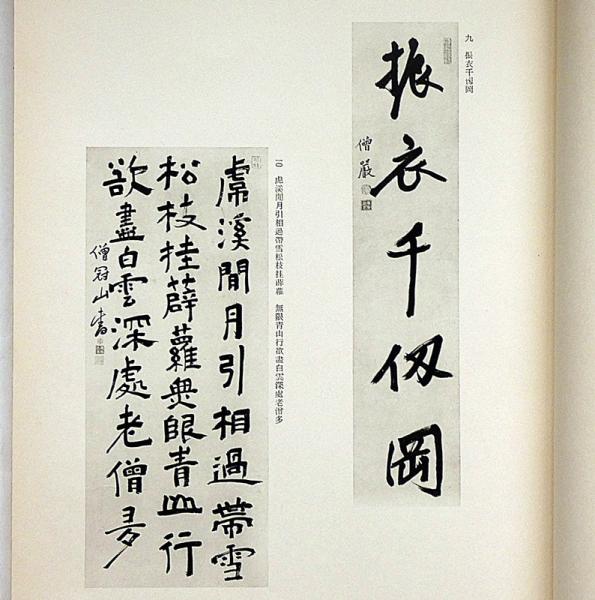 九 振衣千仞岡
振衣千仞岡
僧嚴
一〇 虎溪閒月引相過帶雪松枝挂薜蘿 無限青山行欲盡白雲深處老僧多
虎溪閒月引相過帶雪
松枝挂薜蘿無限青山行
欲盡白雲深處老僧多
僧山書